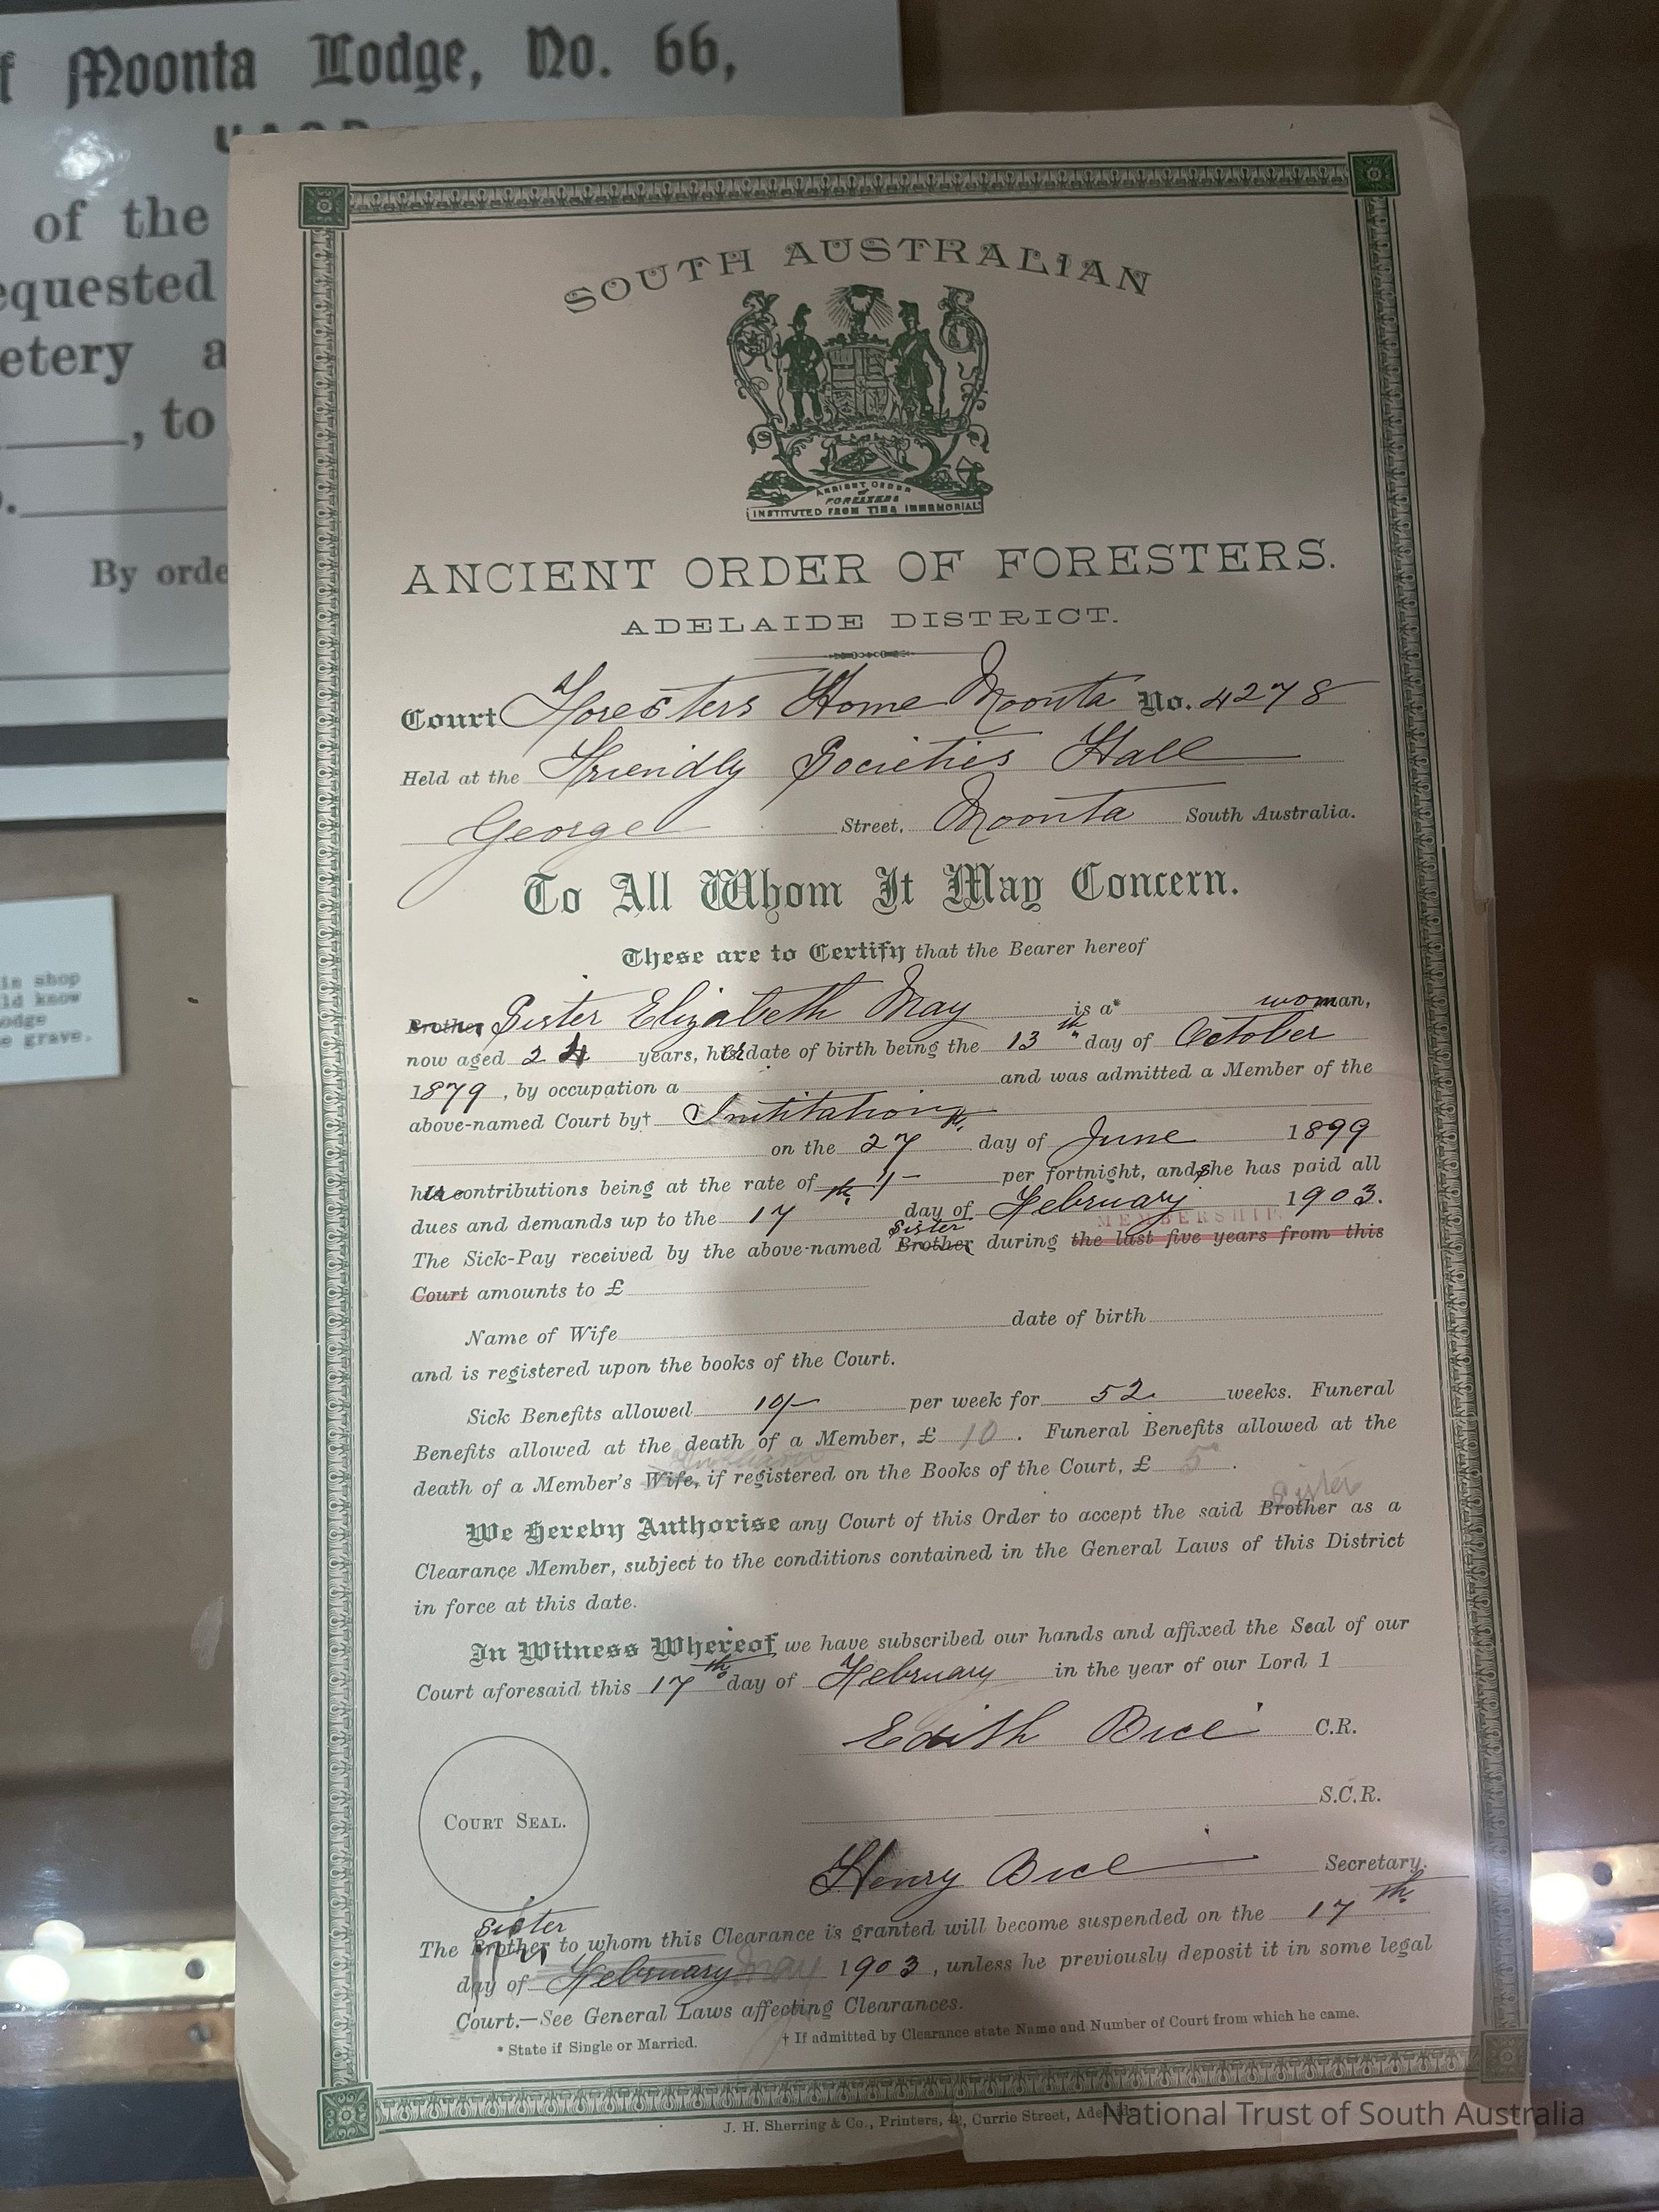 f Moonta Lodge, No. 66,
U.A.O.D.
of the
equested
etery a
, to
By orde
in shop
ld know
odge
e grave.
SOUTH AUSTRALIAN
ANCIENT ORDER
of
FORESTERS
INSTITUTED FROM TIME IMMEMORIAL
ANCIENT ORDER OF FORESTERS.
ADELAIDE DISTRICT.
Court Foresters Home Moonta No. 4278
Held at the Friendly Societies Hall
George Street, Moonta South Australia.
To All Whom It May Concern.
These are to Certify that the Bearer hereof
Brother Sister Elizabeth May is a* woman,
now aged 24 years, her date of birth being the 13th day of October
1879, by occupation a and was admitted a Member of the
above-named Court by† Initiation
on the 27th day of June 1899
her contributions being at the rate of 1/- per fortnight, and she has paid all
dues and demands up to the 17th day of February 1903.
MEMBERSHIP.
Sister
The Sick-Pay received by the above-named Brother during the last five years from this
Court amounts to £
Name of Wife date of birth
and is registered upon the books of the Court.
Sick Benefits allowed 10/- per week for 52 weeks. Funeral
Benefits allowed at the death of a Member, £ 10. Funeral Benefits allowed at the
death of a Member's Wife, if registered on the Books of the Court, £ 5.
Sister
We Hereby Authorise any Court of this Order to accept the said Brother as a
Clearance Member, subject to the conditions contained in the General Laws of this District
in force at this date.
In Witness Whereof, we have subscribed our hands and affixed the Seal of our
Court aforesaid this 17th day of February in the year of our Lord 1
Edith Bice C.R.
S.C.R.
COURT SEAL.
Henry Bice Secretary.
Sister
The Brother to whom this Clearance is granted will become suspended on the 17th
day of February May 1903, unless he previously deposit it in some legal
Court.—See General Laws affecting Clearances.
* State if Single or Married. † If admitted by Clearance state Name and Number of Court from which he came.
J. H. Sherring & Co., Printers, Currie Street, Adel
National Trust of South Australia